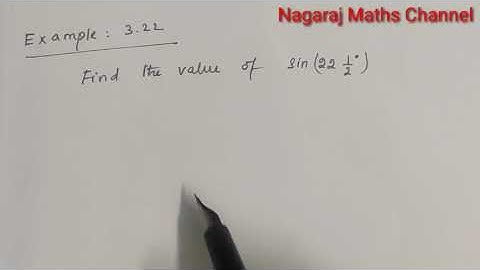 Nagaraj Maths Channel
Example: 3.22
Find the value of sin(22 1/2°)